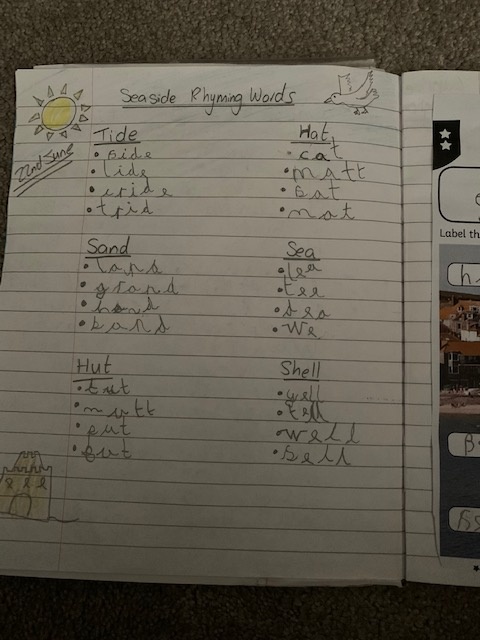 Seaside Rhyming Words
22nd June
Tide
side
lide
trid
Hat
cat
matt
bat
nat
Sand
land
grand
hand
band
Sea
tee
we
Hut
tut
mutt
but
Shell
yell
tell
well
bell
Label th
h